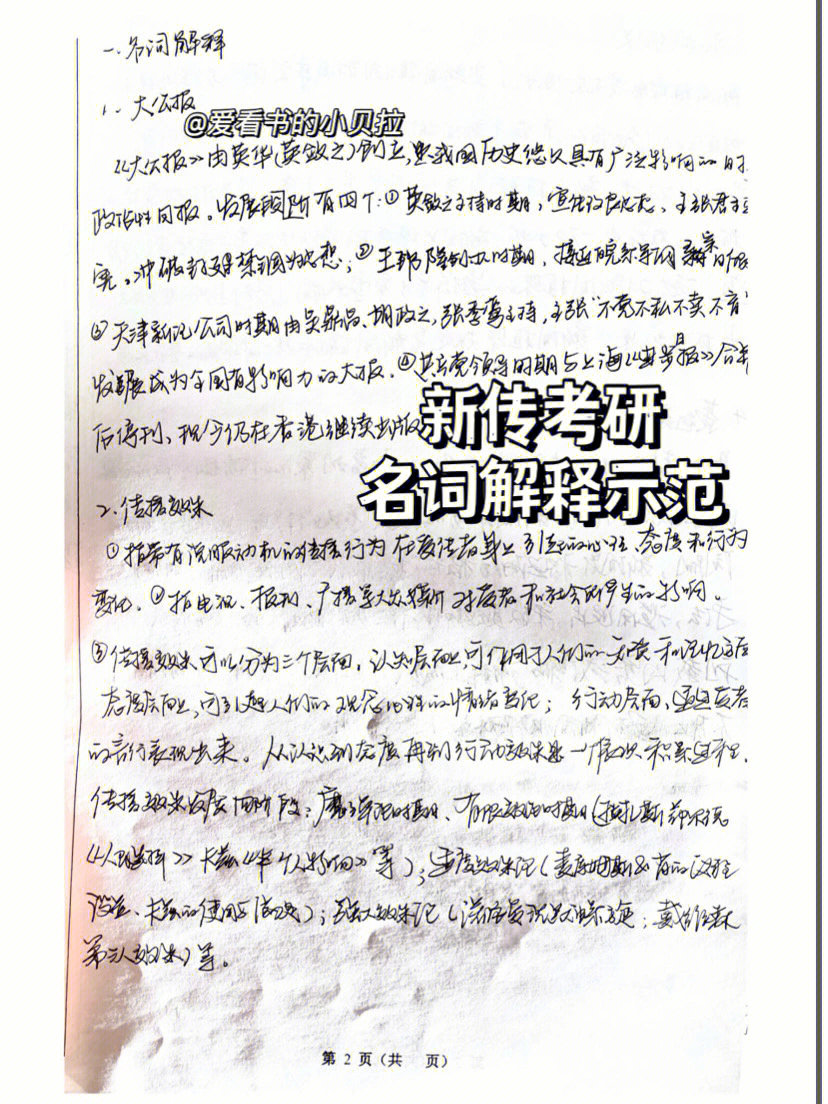 一.名词解释
1、大公报
@爱看书的小贝拉
《大公报》由英华(英敛之)创立,是我国历史悠久具有广泛影响的时
政治性日报。发展阶段有四个:①英敛之主持时期,宣传改良思想、主张君主立
宪。冲破封建禁锢为思想;②王郅隆时期,接近皖系军阀
③天津新记公司时期由吴鼎昌、胡政之,张季鸾主持,主张“不党不私不卖不盲”
发展成为全国有影响力的大报。④共产党领导时期与上海《进步日报》合并
后停刊,现今仍在香港继续出版
新传考研
名词解释示范
2、传播效果
①指带有说服动机的传播行为在受传者身上引起的心理、态度和行为
变化。②指电视、报刊、广播等大众媒介对受者和社会所产生的影响。
③传播效果可以分为三个层面,认知层面上可作用于人们的知觉和记忆
态度层面上,可引起人们的观念心理的情绪变化;行动层面,通过受者
的言行表现出来。从认知到态度再到行动效果是一个层次积累过程。
传播效果发展四阶段:魔弹论时期、有限效果时期(拉扎斯菲尔德
《人民的选择》卡兹《个人影响》等);适度效果论(麦库姆斯&肖的议程
设置、卡兹的使用与满足);强大效果论(诺依曼沉默的螺旋;戴维森
第三人效果)等。
第 2 页(共 页)